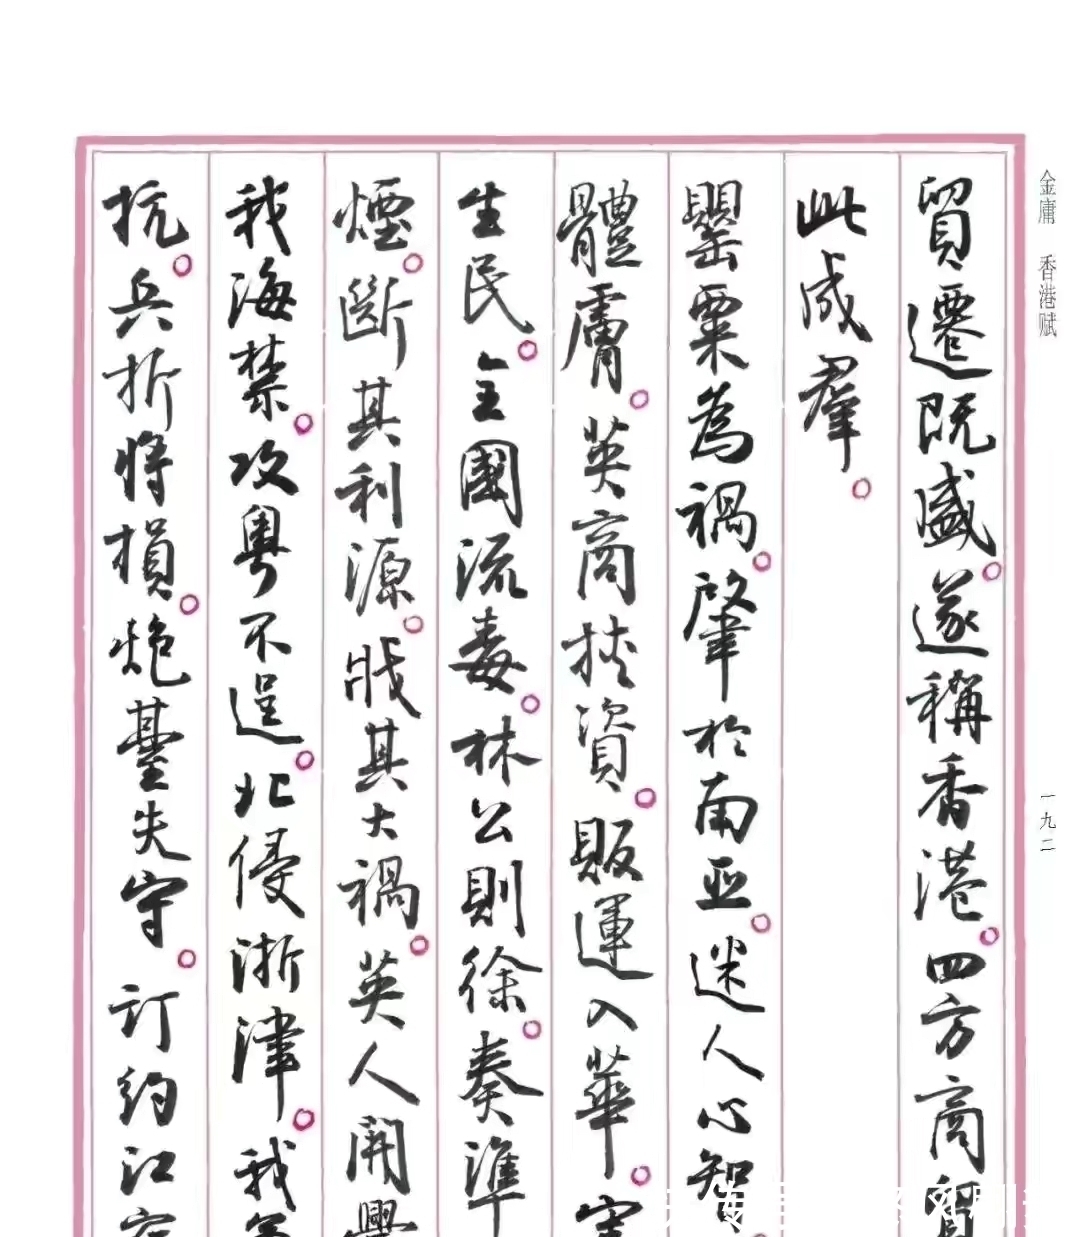 金庸 香港赋
一九二
貿遷既盛。遂稱香港。四方商賈
此成羣。
罌粟為禍。肇於南亚。迷人心智
體膚。英商挟資。販運入華。害
生民。全國流毒。林公則徐。奏準
煙。斷其利源。戕其大禍。英人開釁
我海禁。攻粵不逞。北侵浙津。我
抗。兵折將損。炮臺失守。訂約江